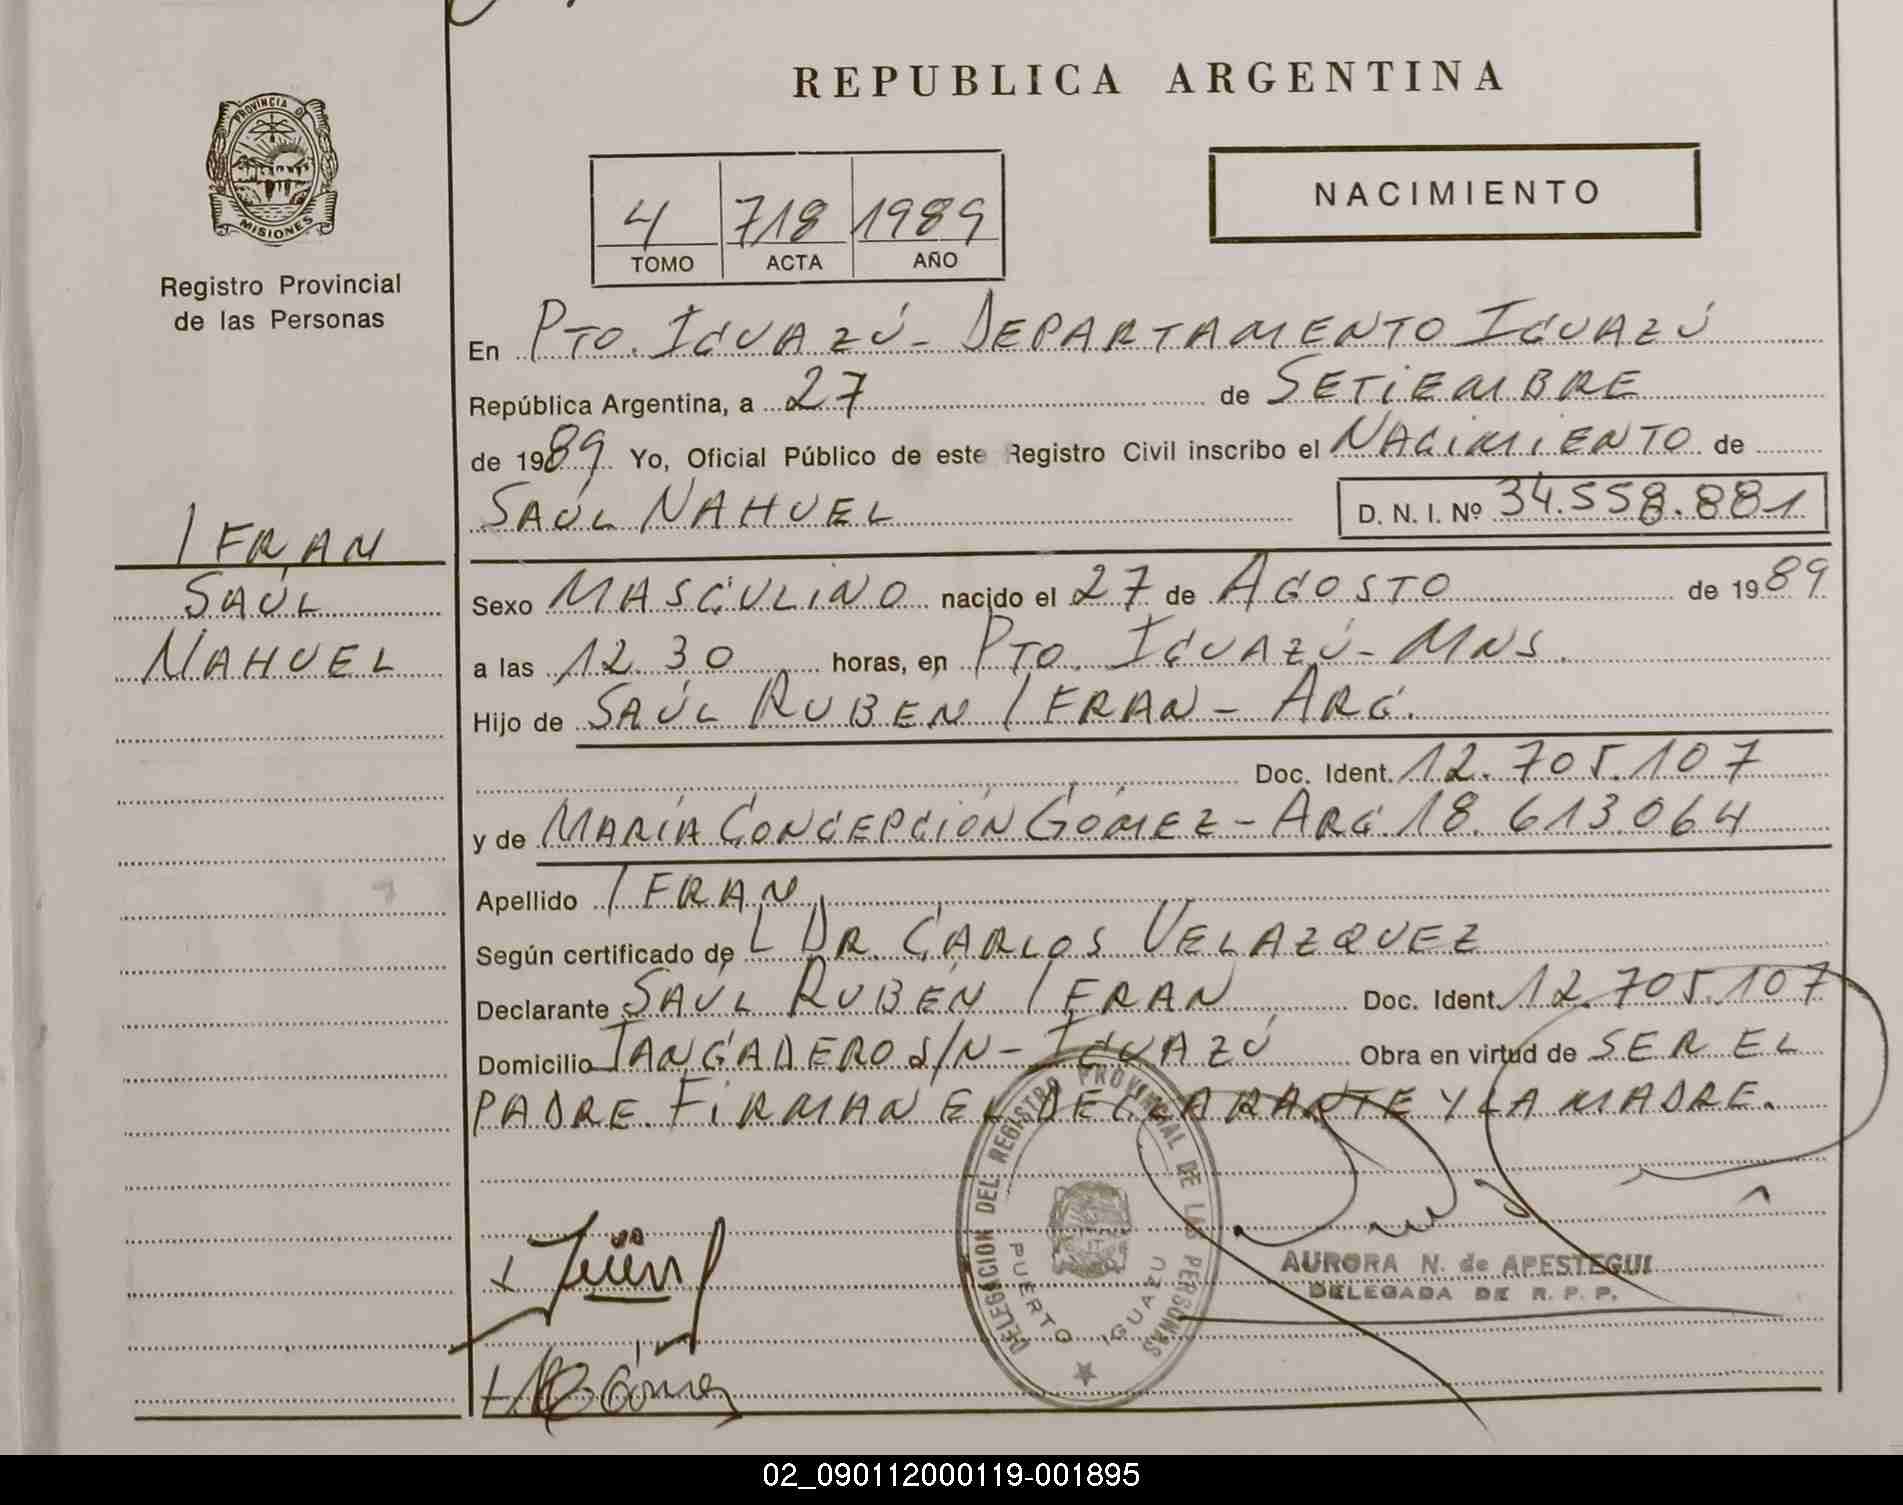 REPUBLICA ARGENTINA
PROVINCIA DE
MISIONES
Registro Provincial
de las Personas
4 718 1989
TOMO ACTA AÑO
NACIMIENTO
En PTO. IGUAZÚ - DEPARTAMENTO IGUAZÚ
República Argentina, a 27 de SETIEMBRE
de 1989. Yo, Oficial Público de este Registro Civil inscribo el NACIMIENTO de
SAÚL NAHUEL D. N. I. Nº 34.558.881
IFRAN
SAÚL
NAHUEL
Sexo MASCULINO nacido el 27 de AGOSTO de 1989
a las 12.30 horas, en PTO. IGUAZÚ - MNS.
Hijo de SAÚL RUBÉN IFRAN - ARG.
Doc. Ident. 12.705.107
y de MARÍA CONCEPCIÓN GÓMEZ - ARG. 18.613.064
Apellido IFRAN
Según certificado de L DR. CARLOS VELAZQUEZ
Declarante SAÚL RUBÉN IFRAN Doc. Ident. 12.705.107
Domicilio TANGADERO S/N - IGUAZÚ Obra en virtud de SER EL
PADRE. FIRMAN EL DECLARANTE Y LA MADRE.
DELEGACION DEL REGISTRO PROVINCIAL DE LAS PERSONAS
PUERTO IGUAZU
AURORA N. de APESTEGUI
DELEGADA DE R. P. P.
Gómez
02_090112000119-001895